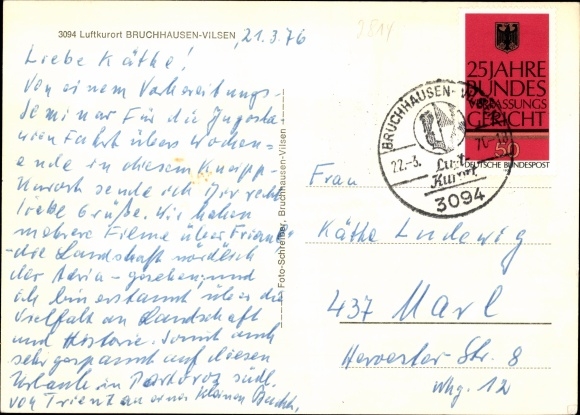 3094 Luftkurort BRUCHHAUSEN-VILSEN
21.3.76
Liebe Käthe!
Von einem Vorbereitungs-
seminar für die Jugosla-
wien Fahrt übers Wochen-
ende in diesem Kneipp-
kurort sende ich Dir recht
liebe Grüße. Wir haben
mehrere Filme über Friaul
- die Landschaft nördlich
der Adria - gesehen, und
ich bin erstaunt über die
Vielfalt an Landschaft
und Historie. Somit auch
sehr gespannt auf diesen
Urlaub in Portoroz südl.
von Triest an einer kleinen Bucht.
Foto-Schreiber, Bruchhausen-Vilsen
25 JAHRE
BUNDES
VERFASSUNGS
GERICHT
50
DEUTSCHE BUNDESPOST
BRUCHHAUSEN-
22.-3.
Luft
Kurort
3094
Frau
Käthe Ludewig
437 Marl
Hervester-Str. 8
Whg. 12